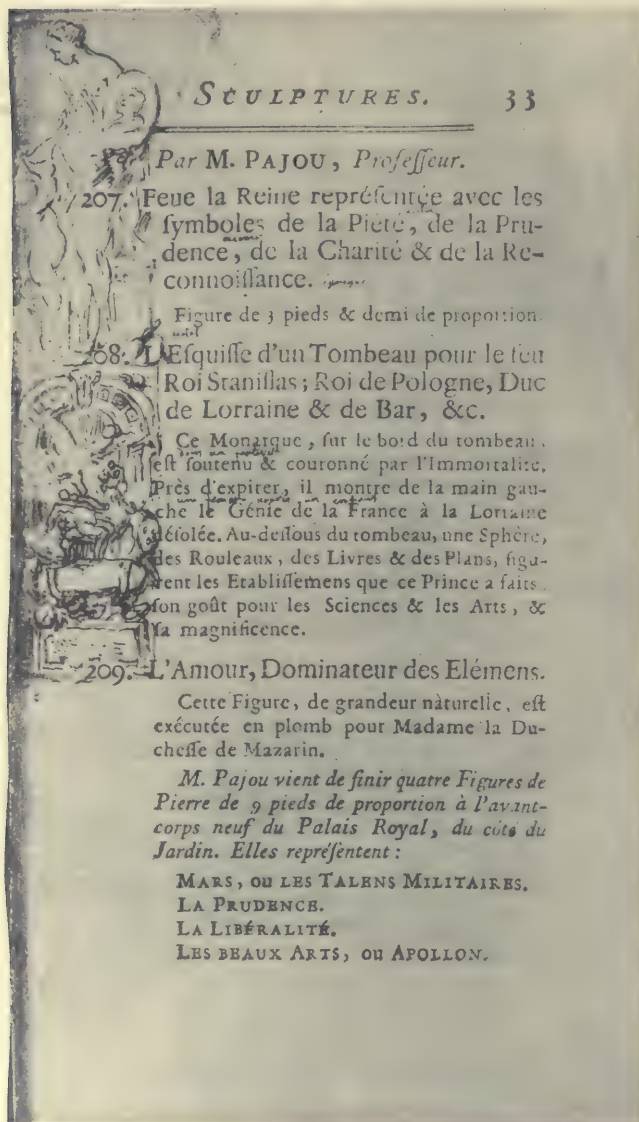 SCULPTURES. 33
Par M. PAJOU, Profeſſeur.
207. Feue la Reine repréſentée avec les
ſymboles de la Piété, de la Pru-
dence, de la Charité & de la Re-
connoiſſance.
Figure de 3 pieds & demi de proportion.
208. L'Eſquiſſe d'un Tombeau pour le feu
Roi Staniſlas; Roi de Pologne, Duc
de Lorraine & de Bar, &c.
Ce Monarque, ſur le bord du tombeau,
eſt ſoutenu & couronné par l'Immortalité.
Près d'expirer, il montre de la main gau-
che le Génie de la France à la Lorraine
déſolée. Au-deſſous du tombeau, une Sphère,
des Rouleaux, des Livres & des Plans, figu-
rent les Etabliſſemens que ce Prince a faits,
ſon goût pour les Sciences & les Arts, &
ſa magnificence.
209. L'Amour, Dominateur des Elémens.
Cette Figure, de grandeur naturelle, eſt
exécutée en plomb pour Madame la Du-
cheſſe de Mazarin.
M. Pajou vient de finir quatre Figures de
Pierre de 9 pieds de proportion à l'avant-
corps neuf du Palais Royal, du côté du
Jardin. Elles repréſentent :
MARS, OU LES TALENS MILITAIRES.
LA PRUDENCE.
LA LIBÉRALITÉ.
LES BEAUX ARTS, OU APOLLON.